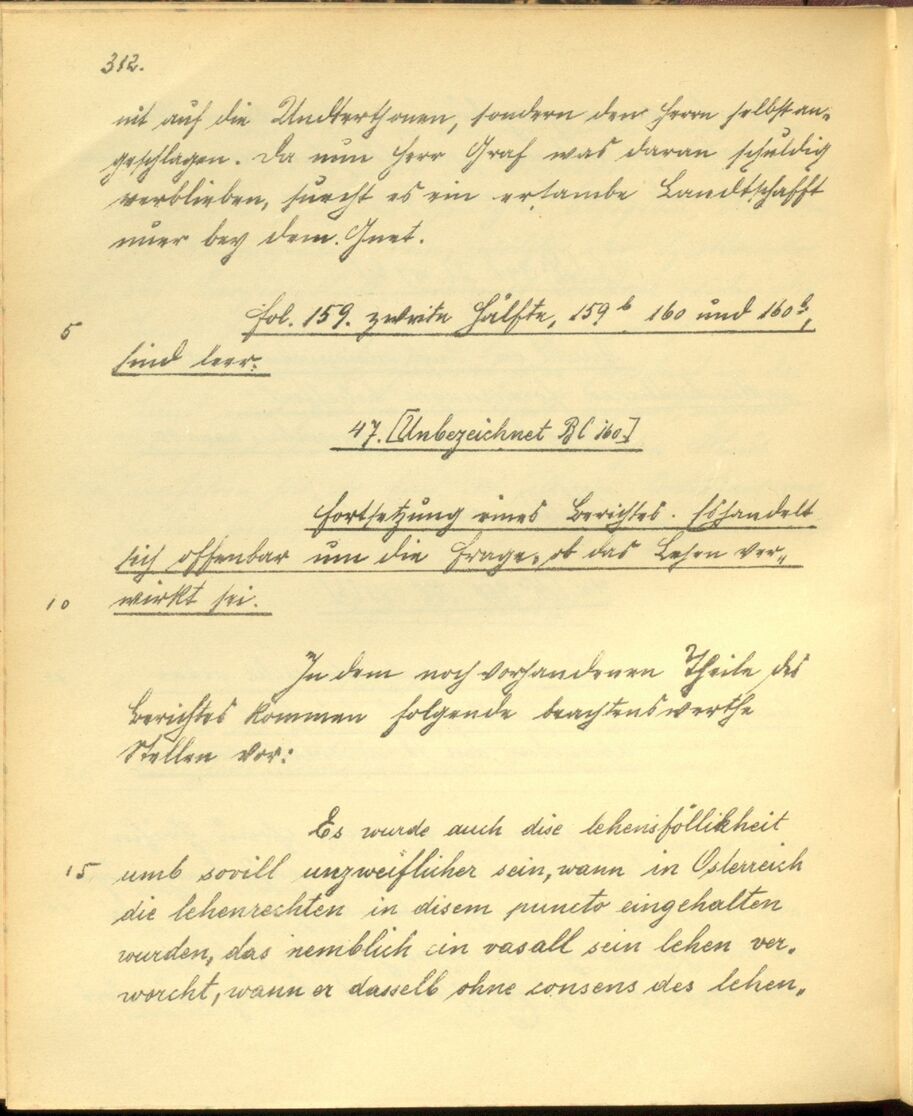 312.
nit auf die Undterthonen, sondern den Herrn selbst an-
geschlagen. Da nun Herr Graf was daran schuldig
verblieben, suecht es ein ersambe Landtschafft
nuer bey dem Gnet.
5 fol. 159. zweite Hälfte, 159 b 160 und 160 b,
sind leer.
47. [Unbezeichnet Bl 160.]
Fortsetzung eines Berichtes. Es handelt
sich offenbar um die Frage, ob das Lehen ver-
10 wirkt sei.
In dem noch vorhandenen Theile des
Berichtes kommen folgende beachtenswerthe
Stellen vor:
Es wurde auch dise lehensföllikheit
15 umb sovill unzweiflicher sein, wann in Osterreich
die lehenrechten in disem puncto eingehalten
wurden, das nemblich ein vasall sein lehen ver-
worcht, wann er dasselb ohne consens des lehen-